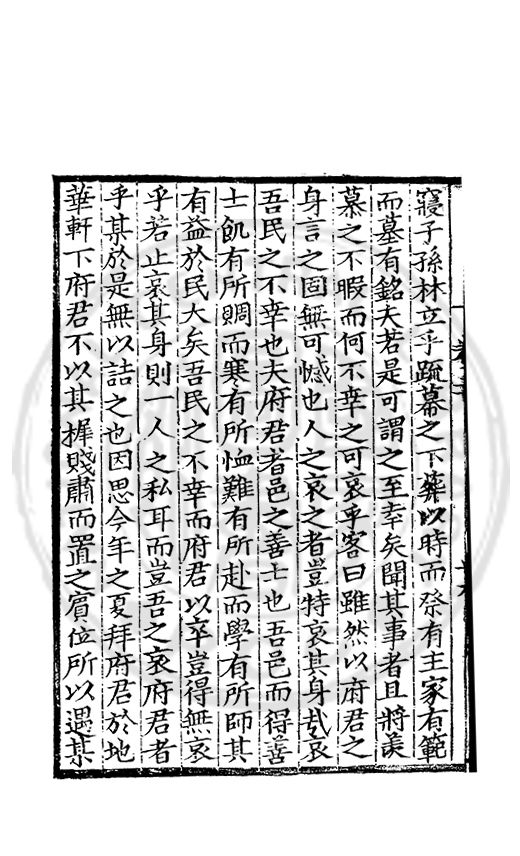 寢子孫林立乎疏幕之下葬以時而祭有主家有範
而墓有銘夫若是可謂之至幸矣聞其事者且將羡
慕之不暇而何不幸之可哀乎客曰雖然以府君之
身言之固無可憾也人之哀之者豈特哀其身哉哀
吾民之不幸也夫府君者邑之善士也吾邑而得善
士飢有所賙而寒有所恤難有所赴而學有所師其
有益於民大矣吾民之不幸而府君以卒豈得無哀
乎若止哀其身則一人之私耳而豈吾之哀府君者
乎某於是無以詰之也因思今年之夏拜府君於地
華軒下府君不以其樨賤肅而置之賓位所以遇某